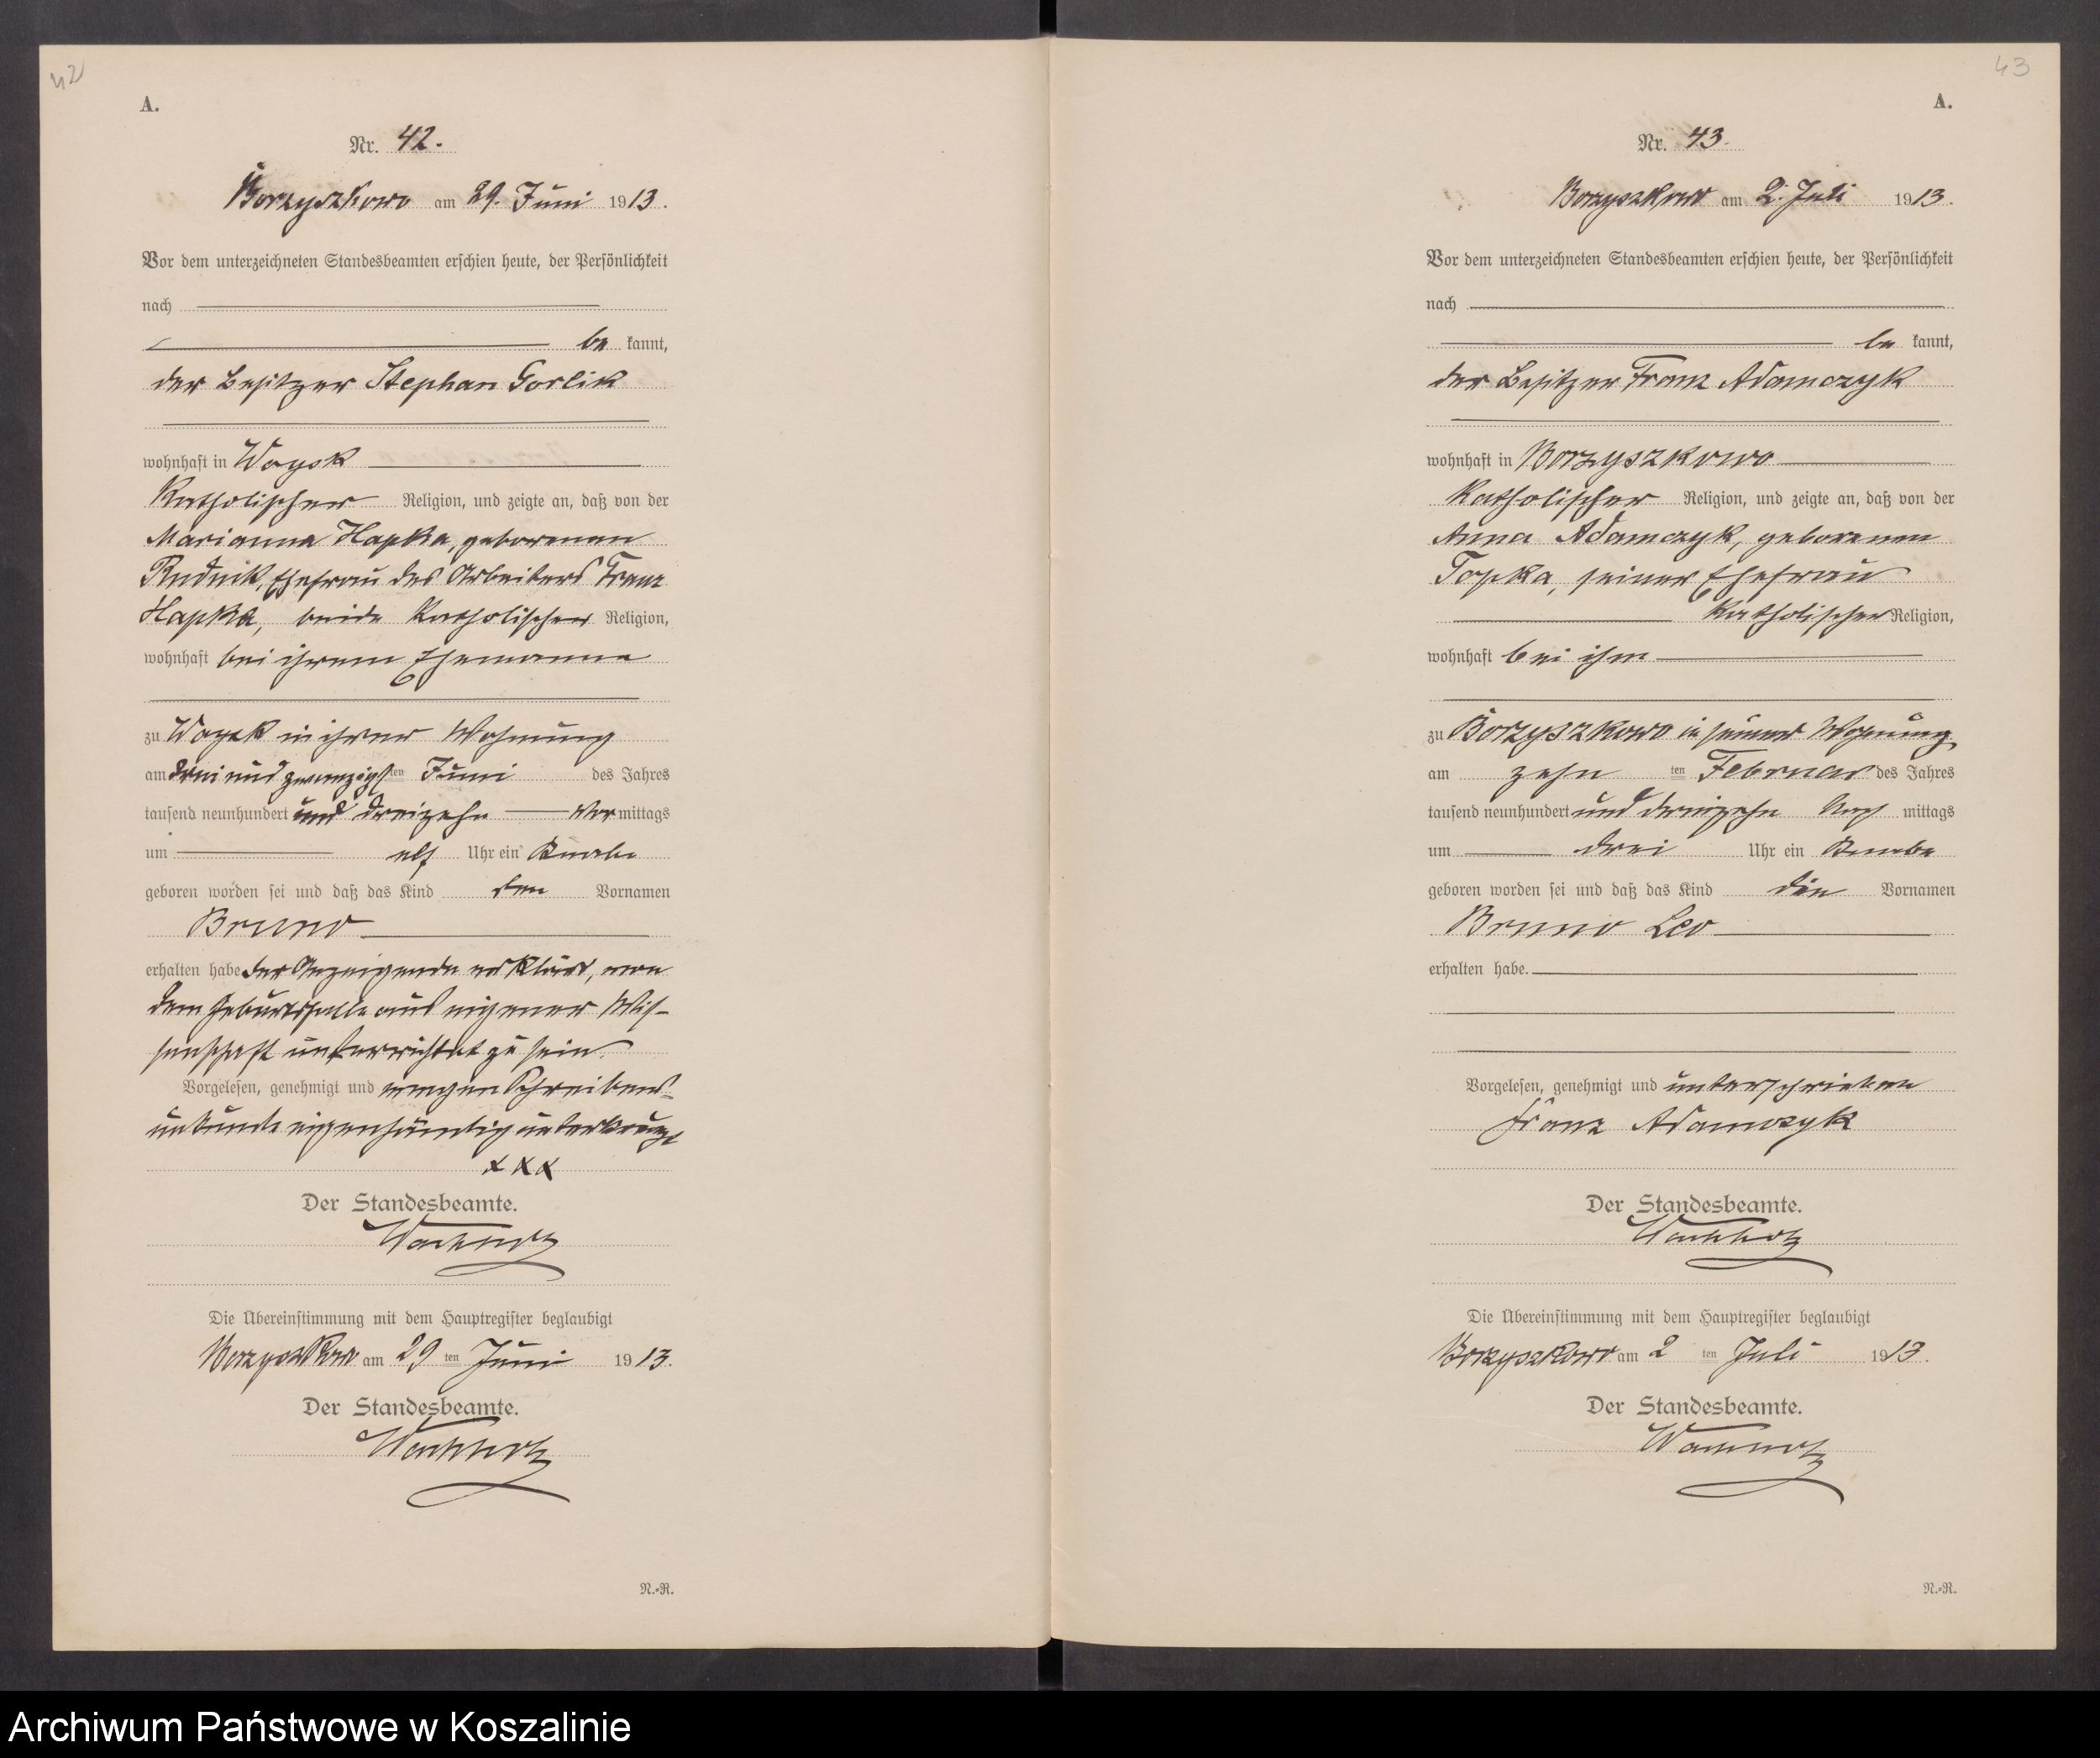 42
A.
Nr. 42.
Borzyszkowo am 29. Juni 1913.
Vor dem unterzeichneten Standesbeamten erschien heute, der Persönlichkeit
nach
be kannt,
der Besitzer Stephan Gorlik
wohnhaft in Woysk
katholischer Religion, und zeigte an, daß von der
Marianna Hapka, geborenen
Rudnik, Ehefrau des Arbeiters Franz
Hapka, beide katholischer Religion,
wohnhaft bei ihrem Ehemanne
zu Woysk in ihrer Wohnung
am drei und zwanzigsten Juni des Jahres
tausend neunhundert und dreizehn Vor mittags
um elf Uhr ein Knabe
geboren worden sei und daß das Kind den Vornamen
Bruno
erhalten habe der Anzeigende erklärt, von
dem Geburtsfalle aus eigener Wis-
senschaft unterrichtet zu sein.
Vorgelesen, genehmigt und wegen Schreibens-
unkunde eigenhändig unterkreuzt
xxx
Der Standesbeamte.
Wachholz
Die Übereinstimmung mit dem Hauptregister beglaubigt
Borzyszkowo am 29 ten Juni 1913.
Der Standesbeamte.
Wachholz
N.-R.
43
A.
Nr. 43.
Borzyszkowo am 2. Juli 1913.
Vor dem unterzeichneten Standesbeamten erschien heute, der Persönlichkeit
nach
be kannt,
der Besitzer Franz Adamczyk
wohnhaft in Borzyszkowo
katholischer Religion, und zeigte an, daß von der
Anna Adamczyk, geborenen
Topka, seiner Ehefrau
katholischer Religion,
wohnhaft bei ihm
zu Borzyszkowo in seiner Wohnung
am zehn ten Februar des Jahres
tausend neunhundert und dreizehn Nach mittags
um drei Uhr ein Knabe
geboren worden sei und daß das Kind die Vornamen
Bruno Leo
erhalten habe.
Vorgelesen, genehmigt und unterschrieben
Franz Adamczyk
Der Standesbeamte.
Wachholz
Die Übereinstimmung mit dem Hauptregister beglaubigt
Borzyszkowo am 2 ten Juli 1913.
Der Standesbeamte.
Wachholz
N.-R.
Archiwum Państwowe w Koszalinie